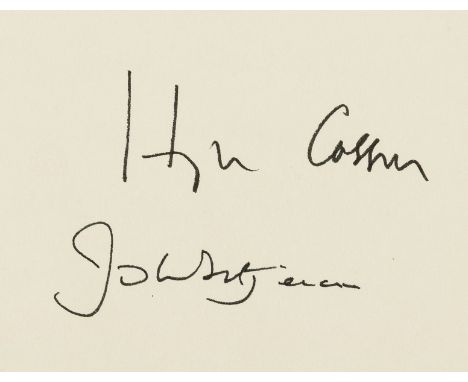 Hugh Casson
John Betjeman